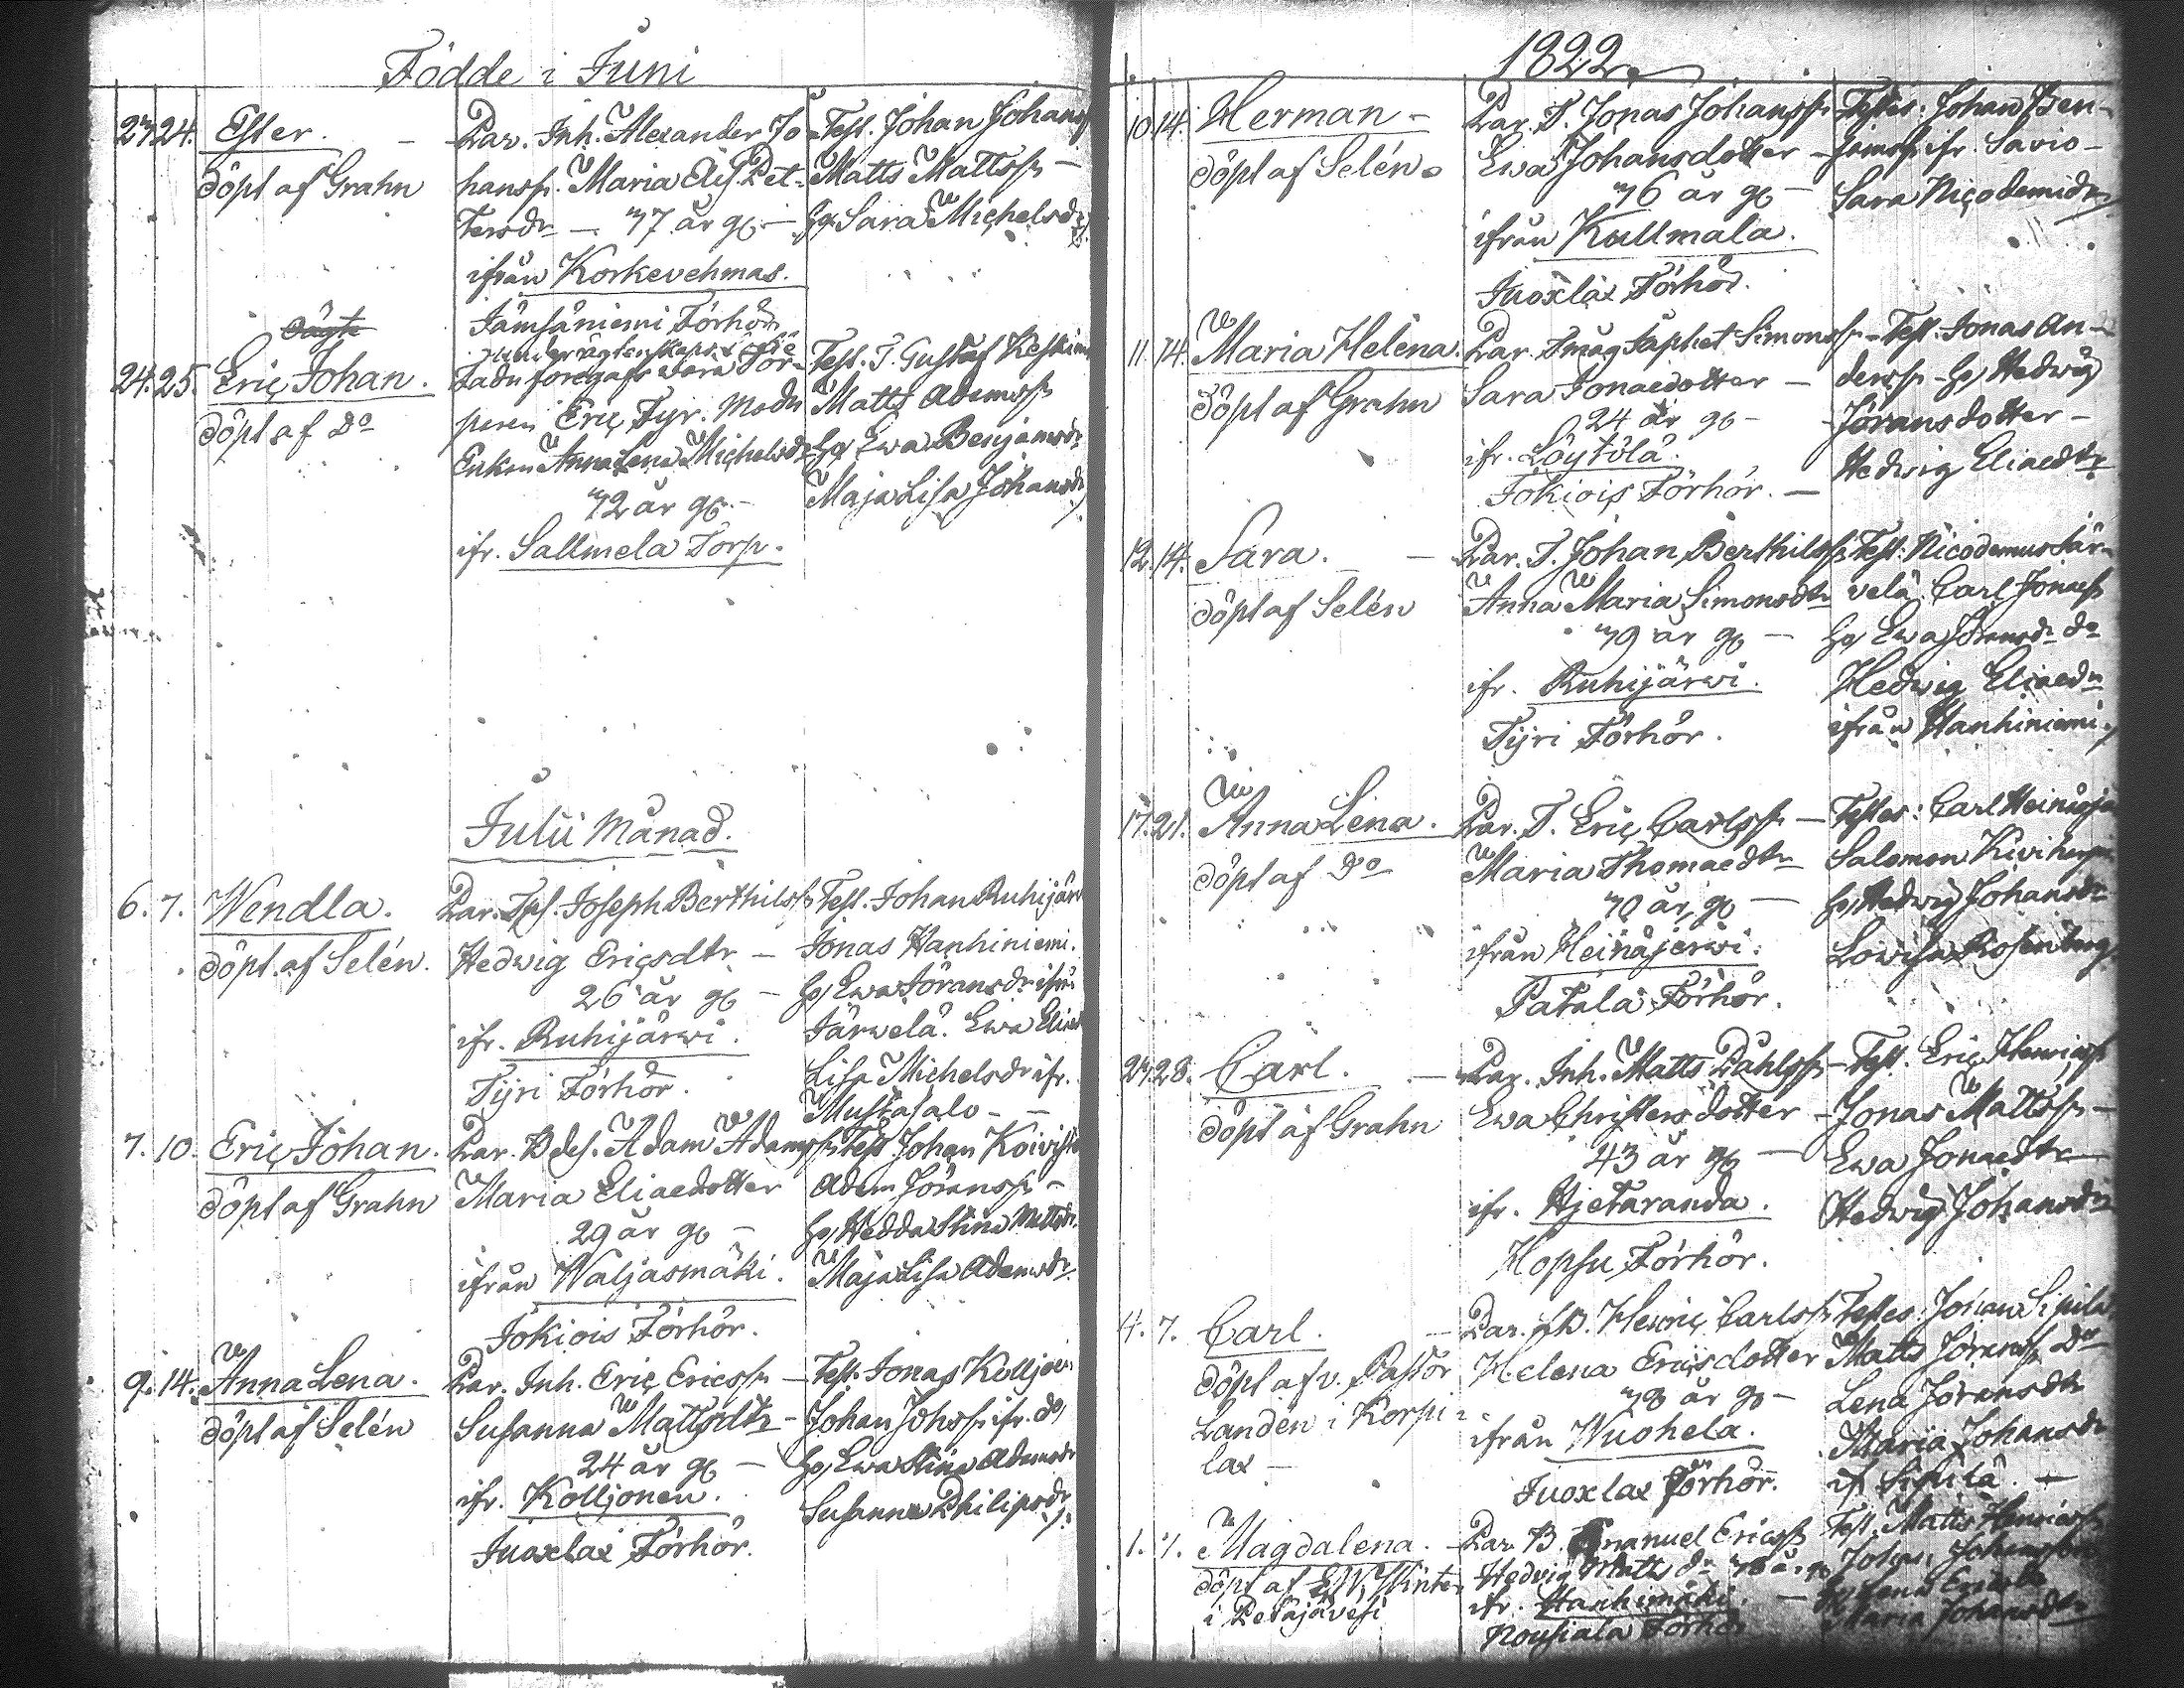 Födde i Juni
23. 24. Ester.
döpt af Grahn
Par. Inh. Alexander Jo-
hanss. Maria Pet-
tersdr 37 år gl.
ifrån Korkevehmas.
Jämsäniemi Förhör
Test. Johan Johanss
Matts Mattss.
Hq Sara Michelsdr
oägte
24. 25. Eric Johan.
döpt af do
Fadn föregafs vara Tor-
paren Eric Tyr. Modn
Enkan Anna Lena Michelsdr
32 år gl.
ifr. Sallmela Torp.
Test. T. Gustaf
Matts Adamss.
Hq Ewa Benjamsdr
Maja Lisa Johansdr
Julii Månad.
6. 7. Wendla.
döpt af Selén.
Par. Joseph Berthilss.
Hedwig Ericsdtr
26 år gl
ifr. Ruhijärwi.
Tyri Förhör.
Test. Johan Ruhijärw
Jonas Hanhiniemi.
Hq Ewa Göransdr ifrån
Järwelä. Ewa
Lisa Michelsdr ifr.
Mustasalo
7. 10. Eric Johan.
döpt af Grahn
Par. Adam Adamss.
Maria Eliaedotter
29 år gl
ifrån Waljasmäki.
Jokiois Förhör.
Test. Johan Koivisto
Adam Göranss.
Hq Hedda Stina Mattsdr.
Maja Lisa Adamsdr.
9. 14. Anna Lena.
döpt af Selén
Par. Inh. Eric Ericss.
Susanna Mattsdtr
24 år gl
ifr. Kolljonen.
Juoxlax Förhör.
Test. Jonas Kolljon
Johan Johss. ifr. do
Hq Ewa Stina Adamsdr
Susanna Philipsdr
1822.
10. 14. Herman
döpt af Selén.
Par. T. Jonas Johanss.
Ewa Johansdotter
36 år gl
ifrån Kullmala.
Juoxlax Förhör.
Testes: Johan Ben-
jamss. ifr. Savio
Sara Nicodemidr
11. 14. Maria Helena.
döpt af Grahn
Par. Japhet Simonss.
Sara Jonaedotter
24 år gl
ifr. Löytölä.
Jokiois Förhör.
Test. Jonas An-
derss. Hq Hedwig
Göransdotter
Hedwig Eliaedtr
12. 14. Sara.
döpt af Selén
Par. T. Johan Berthilss.
Anna Maria Simonsdtr
39 år gl
ifr. Ruhijärwi.
Tyri Förhör.
Test: Nicodemus Jär-
velä. Carl Jonaes
Hq Ewa Göransdr do
Hedwig Eliaedr
ifrån Hanhiniemi
17. 21. Anna Lena.
döpt af do
Par. T. Eric Carlss.
Maria Thomaedtr
30 år gl
ifrån Heinäjerwi.
Patala Förhör.
Testes: Carl Heinäjä
Salomon
Hq Hedwig Johansdr
Lowisa Rosenberg
27. 28. Carl.
döpt af Grahn
Par. Inh. Matts Påhlss.
Ewa Christersdotter
43 år gl
ifr. Hjetaranda.
Hopsu Förhör.
Test. Eric Henricss
Jonas Mattss.
Ewa Jonaedtr
Hedwig Johansdr
4. 7. Carl.
döpt af v. Pastor
Landén i Korpi-
lax
Par. Henric Carlss.
Helena Ericsdotter
38 år gl
ifrån Wuohela.
Juoxlax Förhör.
Testes: Johan Sipilä
Matts Göranss. do
Lena Göransdtr
Maria Johansdr
if Sipilä.
1. 7. Magdalena.
döpt af Winter
i Petäjävesi
Par. B. Emanuel Ericss
Hedvig Mattsdr
ifr. Hanhimäki.
Förhör
Test. Matts Henricss
Maria Johansdtr